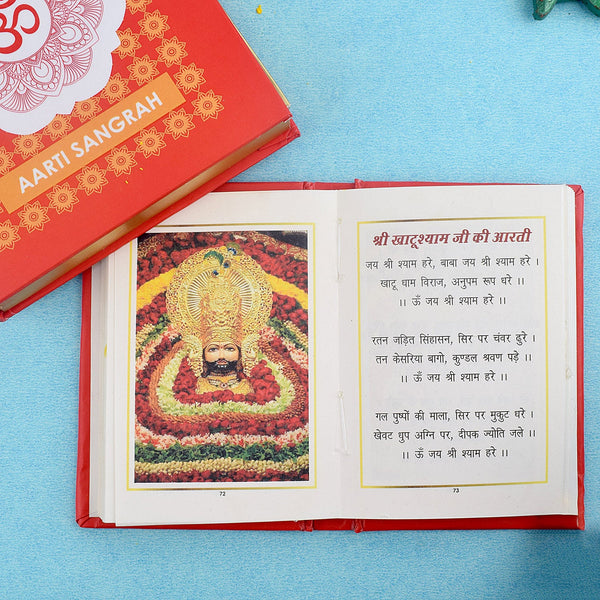 ॐ
AARTI SANGRAH
श्री खाटूश्याम जी की आरती
जय श्री श्याम हरे, बाबा जय श्री श्याम हरे ।
खाटू धाम विराज, अनुपम रूप धरे ।।
।। ऊँ जय श्री श्याम हरे ।।
रतन जड़ित सिंहासन, सिर पर चंवर ढुरे ।
तन केसरिया बागो, कुण्डल श्रवण पड़े ।।
।। ऊँ जय श्री श्याम हरे ।।
गल पुष्पों की माला, सिर पर मुकुट धरे ।
खेवट धुप अग्नि पर, दीपक ज्योति जले ।।
।। ऊँ जय श्री श्याम हरे ।।
72
73